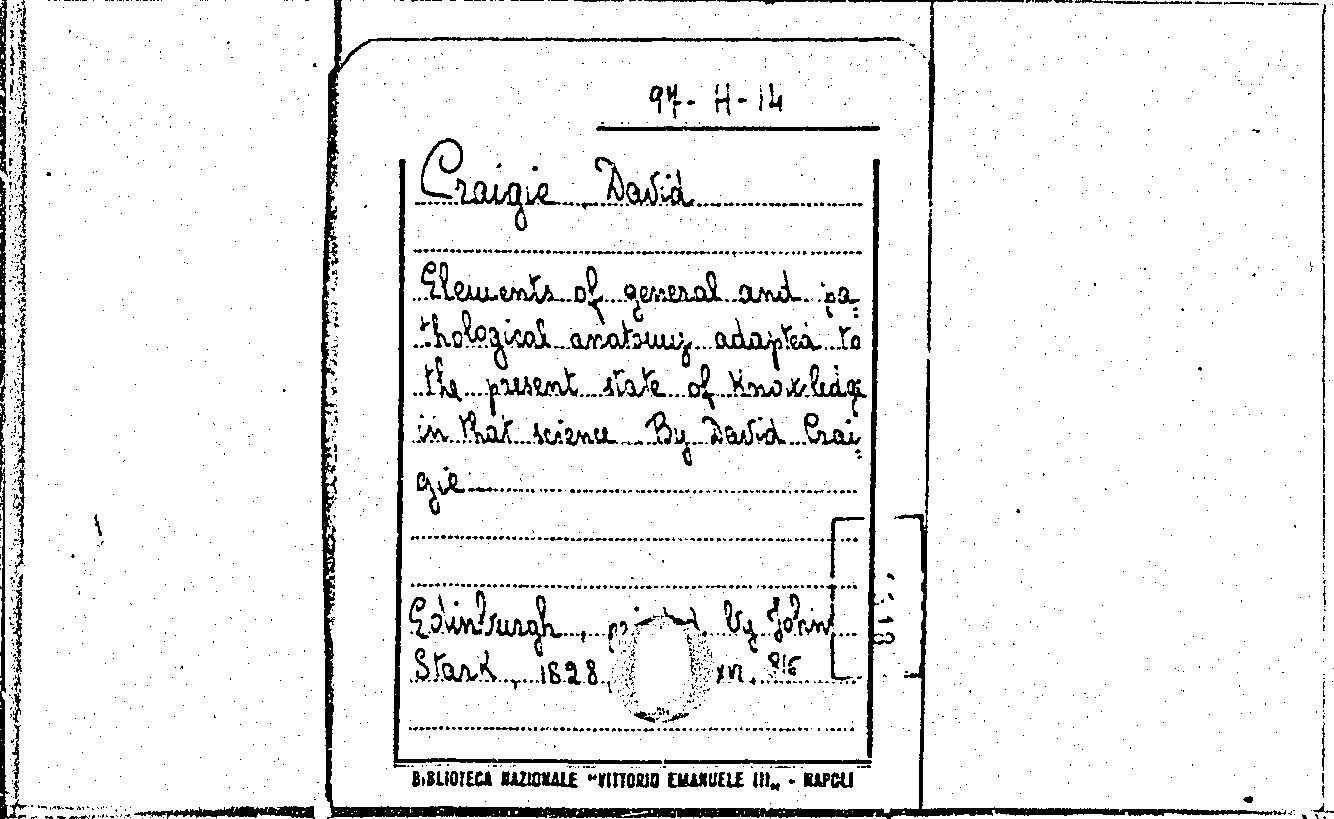 97- H-14
Craigie, David
Elements of general and pa=
thological anatomy adapted to
the present state of Knowledge
in that science By David Crai=
gie
Edinburgh, by John
Stark, 1828, XVI,
BIBLIOTECA NAZIONALE "VITTORIO EMANUELE III„ - NAPOLI